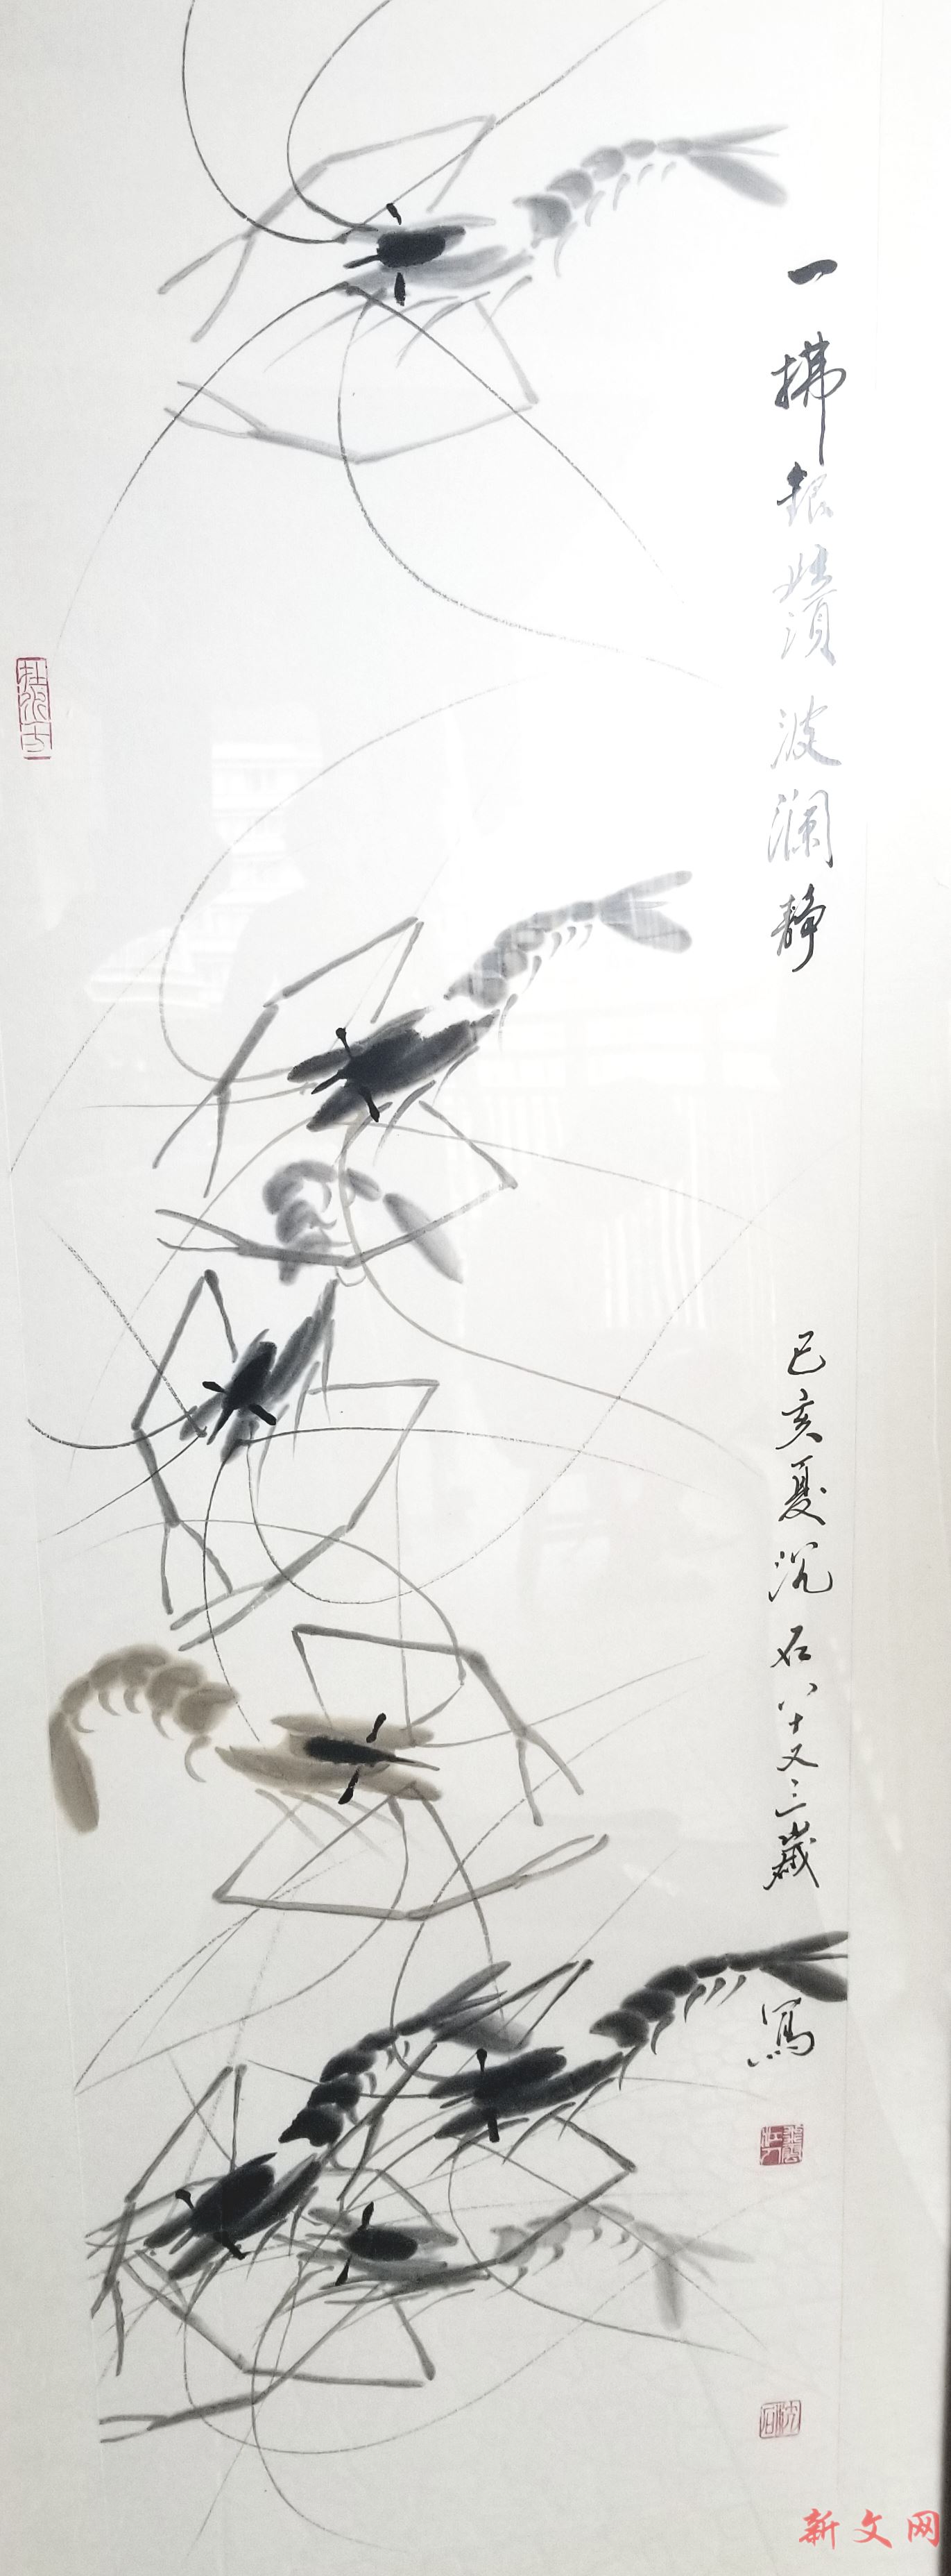 一拂銀鬚波澜静
己亥夏沉石八十又三歲
寫
新文网